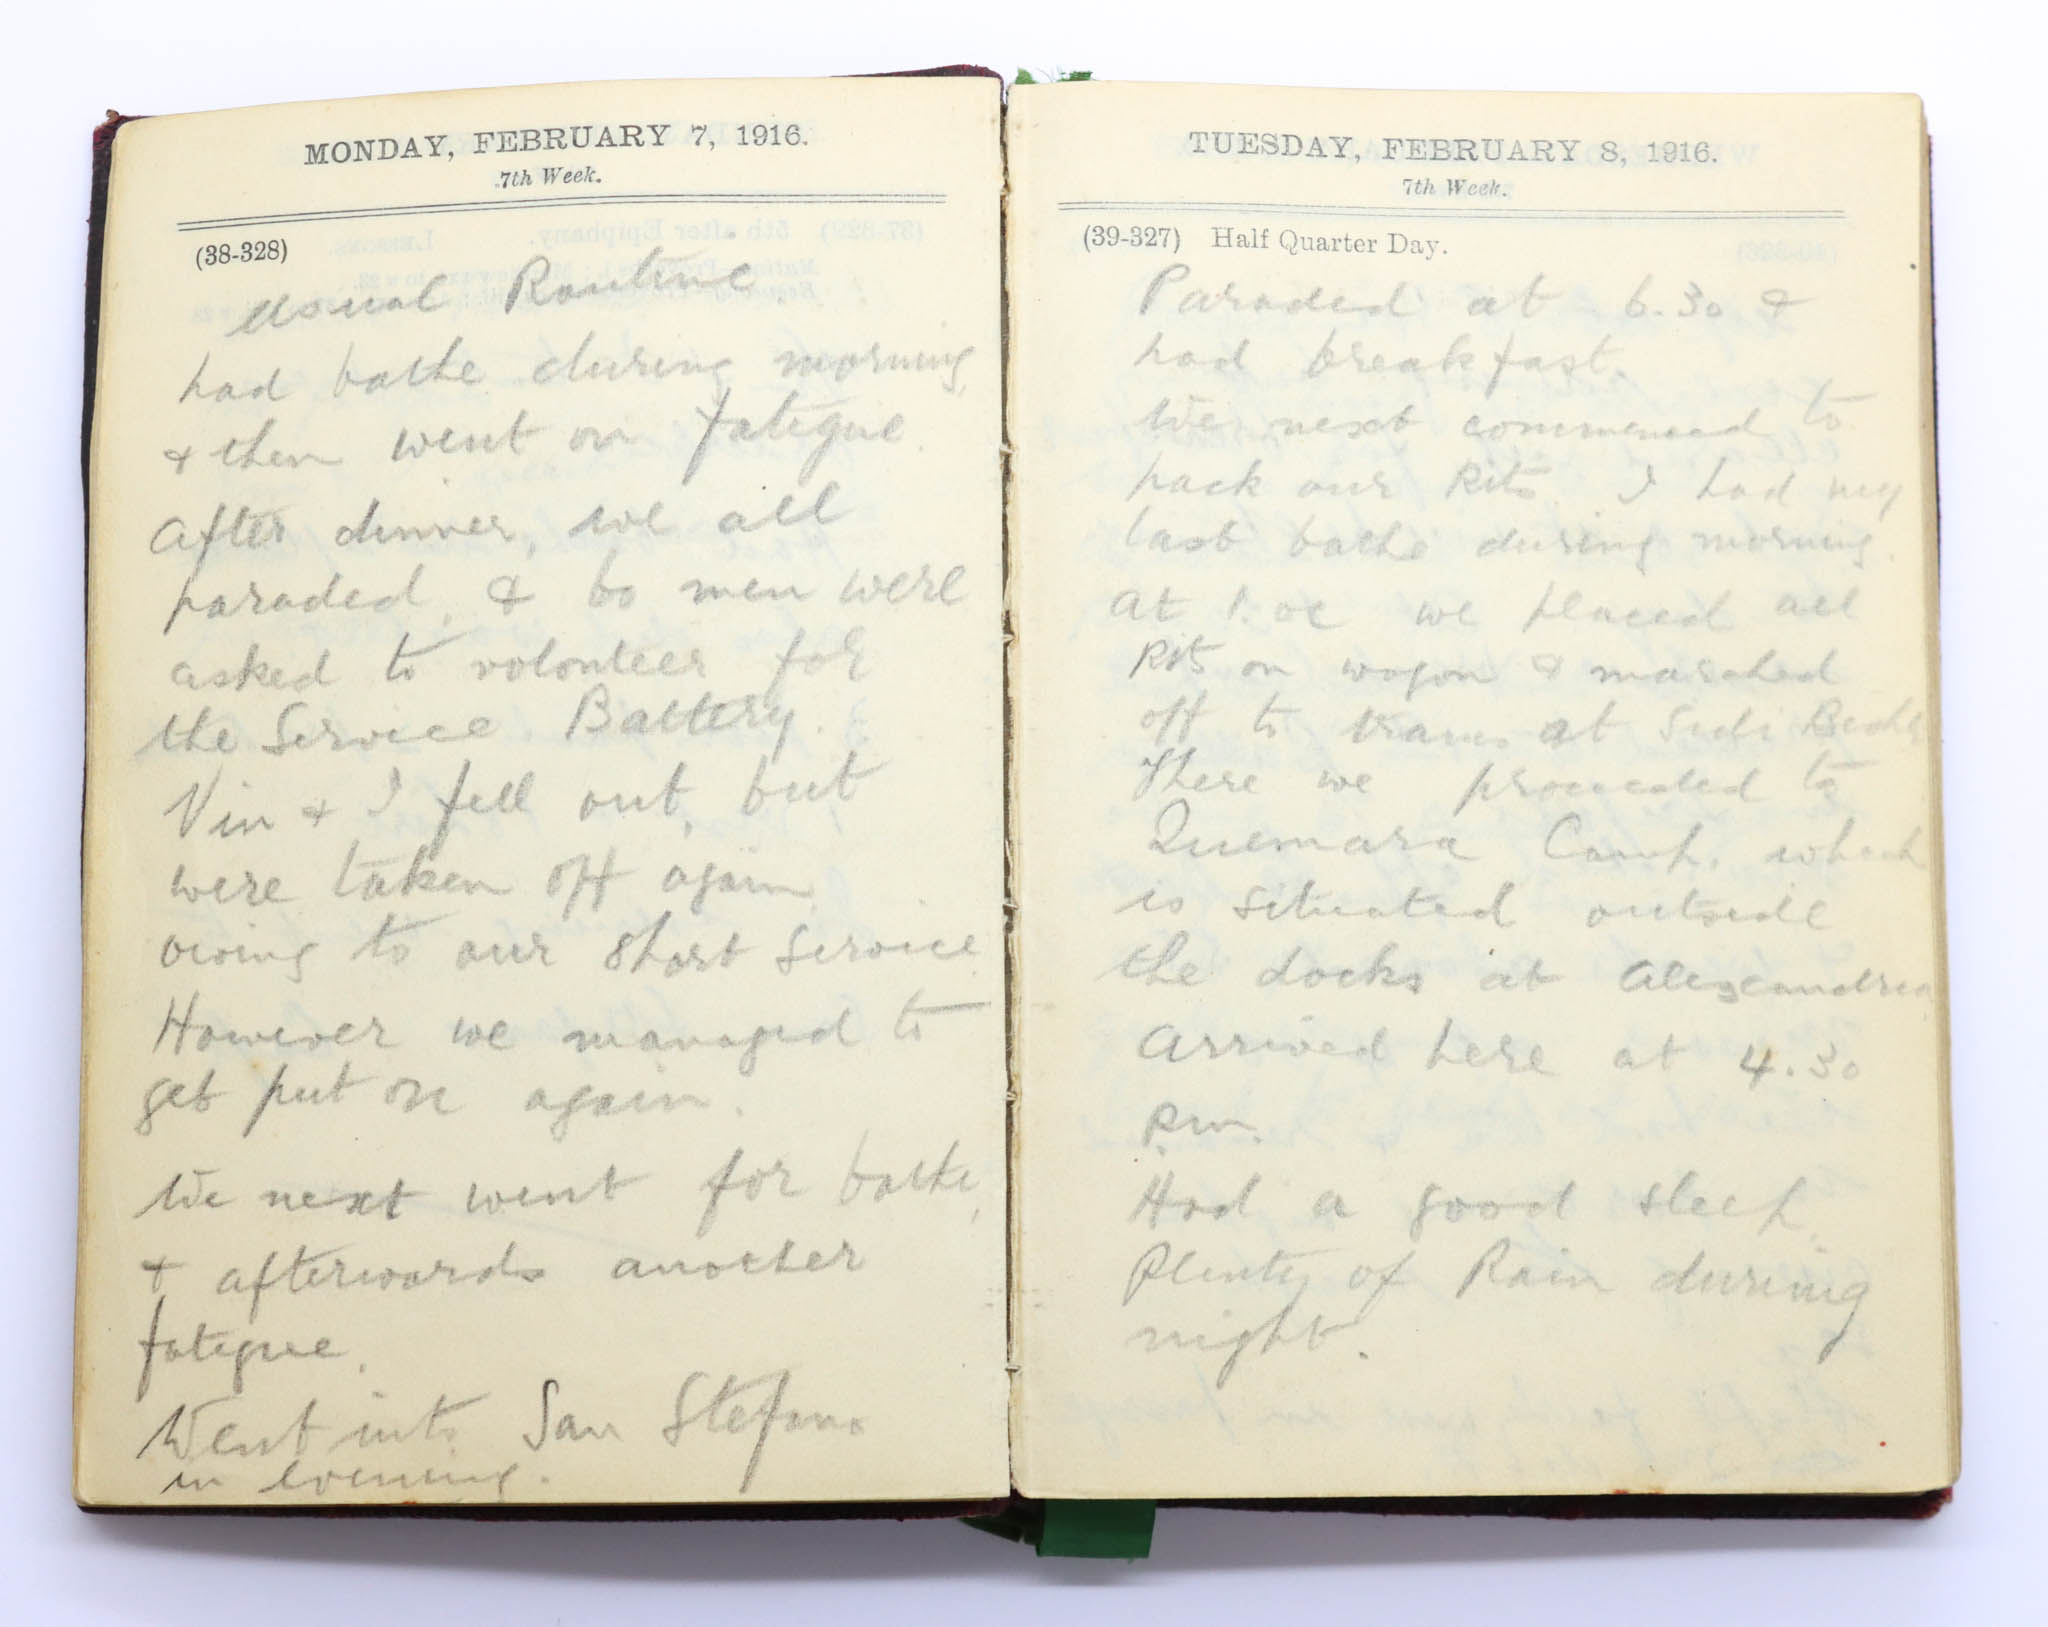 MONDAY, FEBRUARY 7, 1916.
7th Week.
(38-328)
Usual Routine
had bathe during morning
& then went on fatigue.
After dinner, we all
paraded, & 60 men were
asked to volonteer for
the Service Battery.
Vin & I fell out, but
were taken off again
owing to our short service
However we managed to
get put on again.
We next went for bathe,
& afterwards another
fatigue.
Went into San Stefano
in evening.
TUESDAY, FEBRUARY 8, 1916.
7th Week.
(39-327) Half Quarter Day.
Paraded at 6.30 &
had breakfast.
We next commenced to
pack our Kits. I had my
last bathe during morning.
At 1. oc we placed all
Kits on wagon & marched
off to trams at Sidi Bishr
There we proceeded to
Camp. which
is situated outside
the docks at Alexandria
Arrived here at 4.30
P.m.
Had a good sleep.
Plenty of Rain during
night.